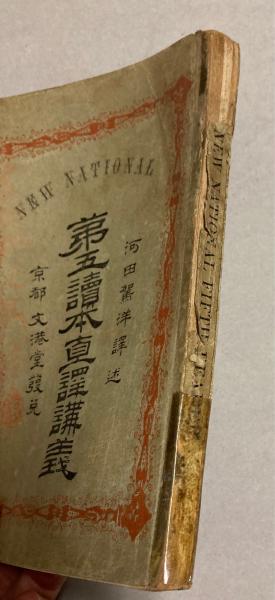 NEW NATIONAL
河田鴬洋譯述
第五讀本直譯講義
京都 文港堂發兌
NEW NATIONAL FIFTH